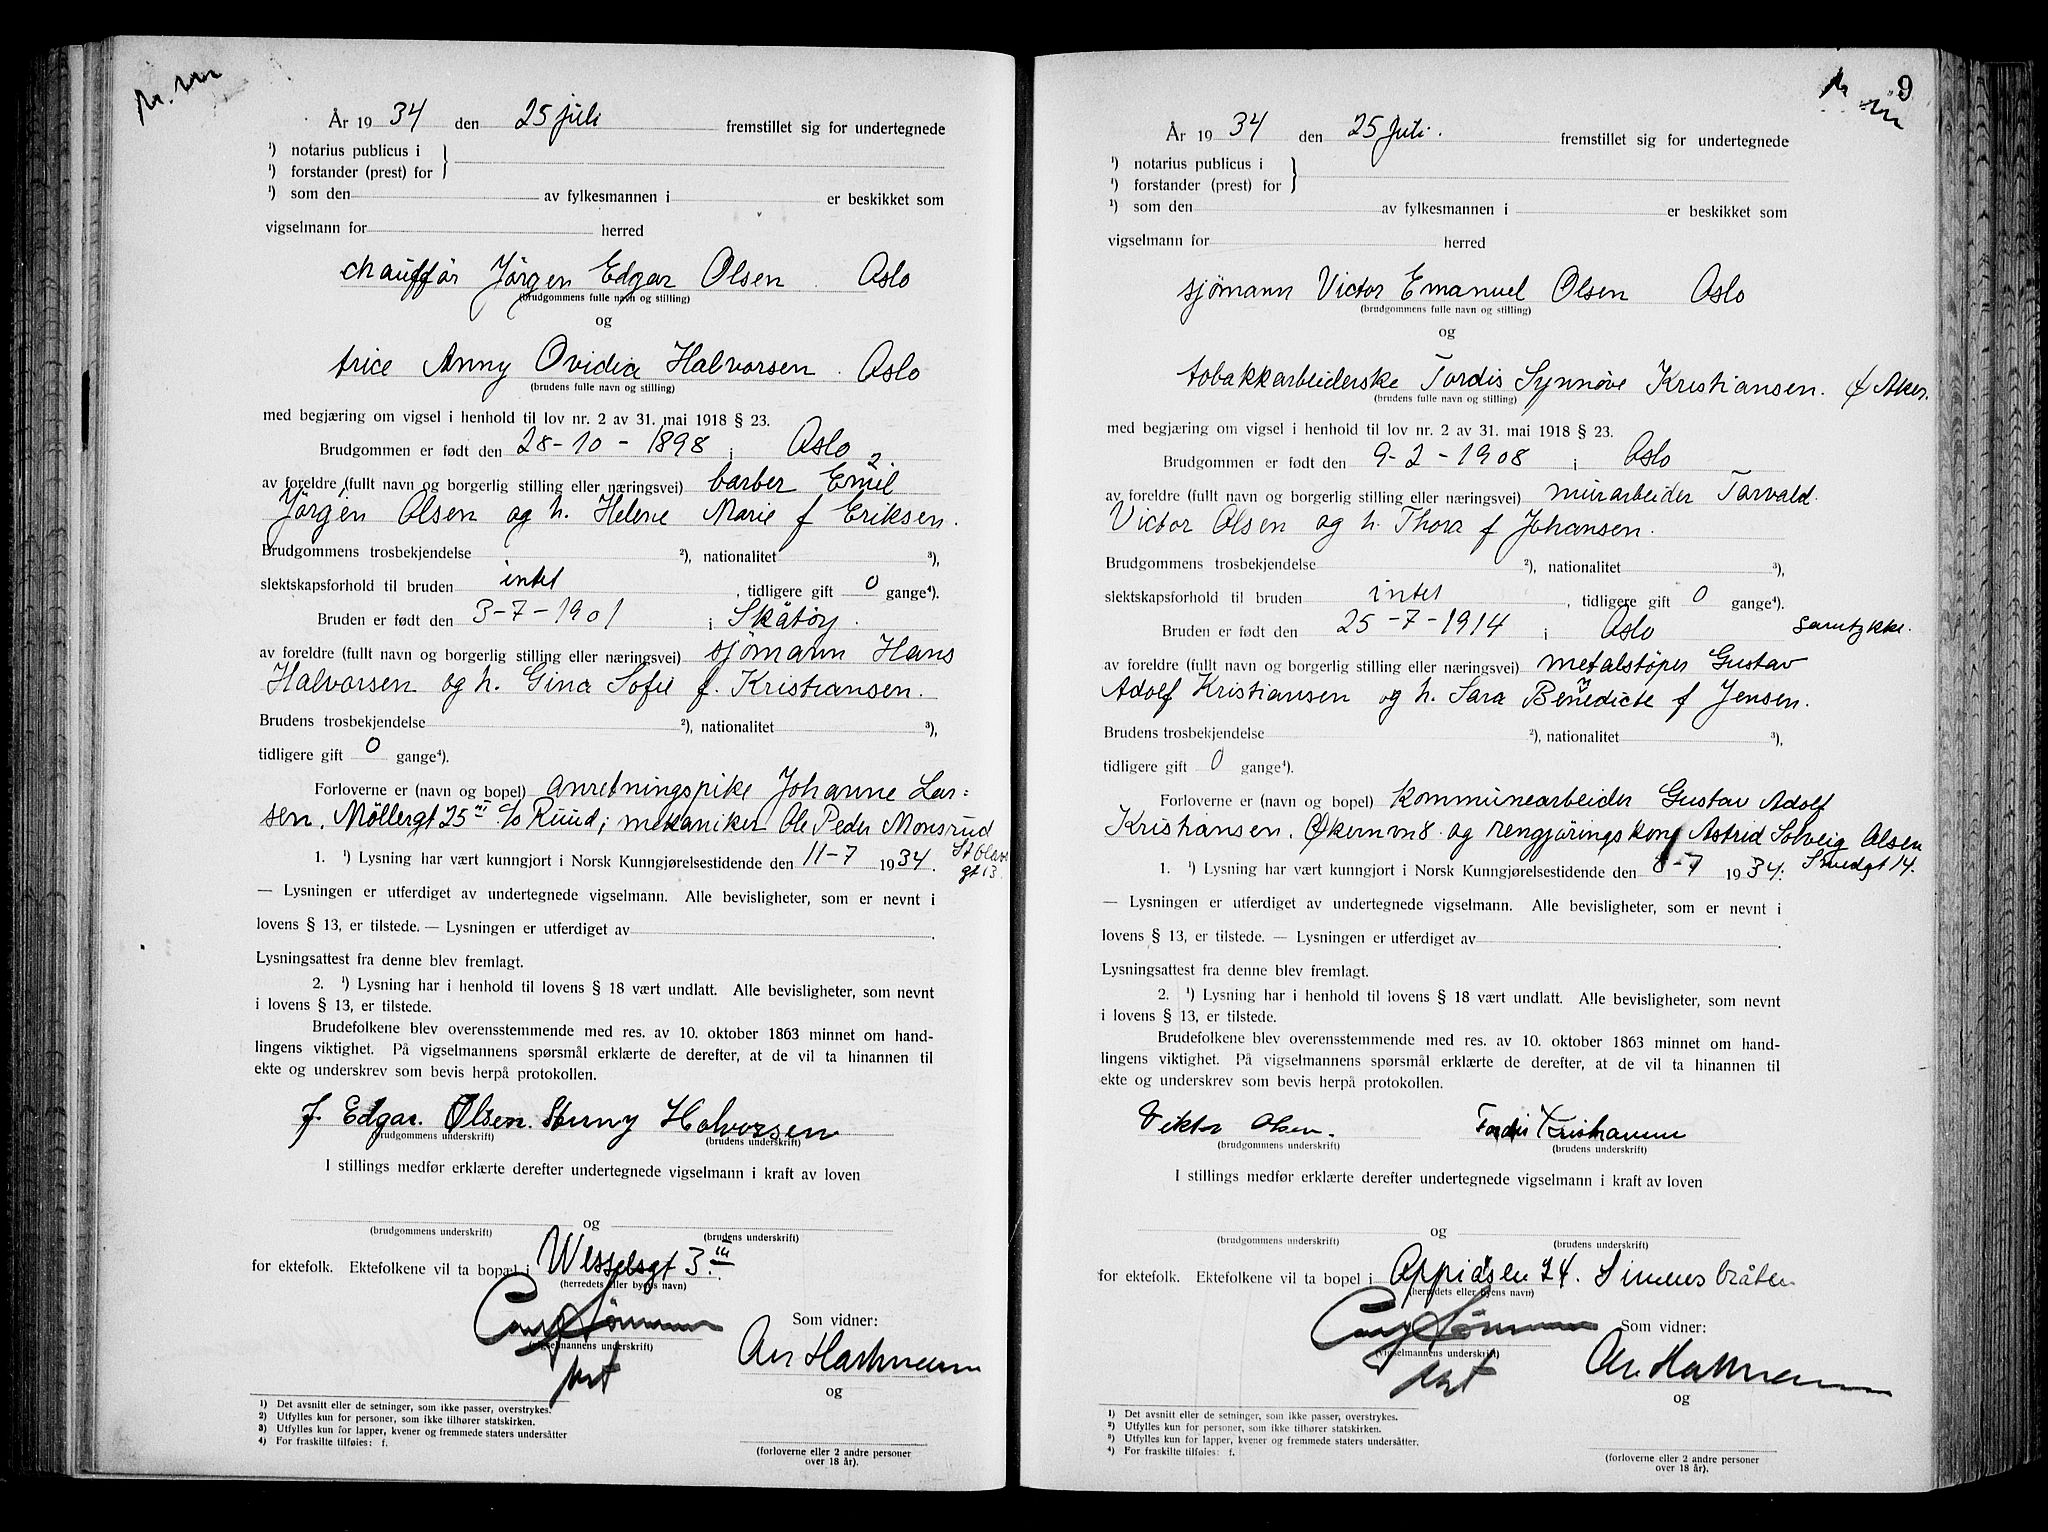 År 1934 den 25 juli fremstillet sig for undertegnede
¹) notarius publicus i
¹) forstander (prest) for
¹) som den av fylkesmannen i er beskikket som
vigselmann for herred
chauffør Jörgen Edgar Olsen. Oslo
(brudgommens fulle navn og stilling)
og
frice Anny Ovidia Halvorsen. Oslo
(brudens fulle navn og stilling)
med begjæring om vigsel i henhold til lov nr. 2 av 31. mai 1918 § 23.
Brudgommen er født den 28-10-1898 i Oslo
av foreldre (fullt navn og borgerlig stilling eller næringsvei) barber Emil
Jörgen Olsen og h. Helene Marie f Eriksen.
Brudgommens trosbekjendelse ²), nationalitet ³),
slektskapsforhold til bruden intet, tidligere gift 0 gange⁴).
Bruden er født den 3-7-1901 i Skåtøy.
av foreldre (fullt navn og borgerlig stilling eller næringsvei) sjømann Hans
Halvorsen og h. Gina Sofie f. Kristiansen.
Brudens trosbekjendelse ²), nationalitet ³),
tidligere gift 0 gange⁴).
Forloverne er (navn og bopel) anretningspike Johanne Lar=
sen, Möllergt 25 III c/o Ruud; mekaniker Ole Peder Monsrud
St Olavs
gt 13.
1. ¹) Lysning har vært kunngjort i Norsk Kunngjørelsestidende den 11-7 1934.
— Lysningen er utferdiget av undertegnede vigselmann. Alle bevisligheter, som er nevnt i
lovens § 13, er tilstede. — Lysningen er utferdiget av
Lysningsattest fra denne blev fremlagt.
2. ¹) Lysning har i henhold til lovens § 18 vært undlatt. Alle bevisligheter, som nevnt
i lovens § 13, er tilstede.
Brudefolkene blev overensstemmende med res. av 10. oktober 1863 minnet om hand-
lingens viktighet. På vigselmannens spørsmål erklærte de derefter, at de vil ta hinannen til
ekte og underskrev som bevis herpå protokollen.
J. Edgar. Olsen. Anny Halvorsen
(brudgommens underskrift) (brudens underskrift)
I stillings medfør erklærte derefter undertegnede vigselmann i kraft av loven
og
(brudgommens underskrift) (brudens underskrift)
for ektefolk. Ektefolkene vil ta bopæl i Wesselsgt 3.
(herredets eller byens navn)
Som vidner:
(vigselmannens underskrift)
Hartmann
og
1) Det avsnitt eller de setninger, som ikke passer, overstrykes.
2) Utfylles kun for personer, som ikke tilhører statskirken.
3) Utfylles kun for lapper, kvener og fremmede staters undersåtter
4) For fraskilte tilføies: f.
(forloverne eller 2 andre personer
over 18 år).
9
År 1934 den 25 Juli. fremstillet sig for undertegnede
¹) notarius publicus i
¹) forstander (prest) for
¹) som den av fylkesmannen i er beskikket som
vigselmann for herred
sjømann Victor Emanuel Olsen Oslo
(brudgommens fulle navn og stilling)
og
tobakkarbeiderske Tordis Synnøve Kristiansen. Ø Aker.
(brudens fulle navn og stilling)
med begjæring om vigsel i henhold til lov nr. 2 av 31. mai 1918 § 23.
Brudgommen er født den 9-2-1908 i Oslo
av foreldre (fullt navn og borgerlig stilling eller næringsvei) murarbeider Tarvald
Victor Olsen og h. Thora f Johansen.
Brudgommens trosbekjendelse ²), nationalitet ³),
slektskapsforhold til bruden intet, tidligere gift 0 gange⁴).
Bruden er født den 25-7-1914 i Oslo samtykke.
av foreldre (fullt navn og borgerlig stilling eller næringsvei) metalstøper Gustav
Adolf Kristiansen og h. Sara Benedicte f Jensen.
Brudens trosbekjendelse ²), nationalitet ³),
tidligere gift 0 gange⁴).
Forloverne er (navn og bopel) kommunearbeider Gustav Adolf
Kristiansen. Økernvn 8. og rengjøringskone Astrid Solveig Olsen
Smedgt 14.
1. ¹) Lysning har vært kunngjort i Norsk Kunngjørelsestidende den 8-7 1934.
— Lysningen er utferdiget av undertegnede vigselmann. Alle bevisligheter, som er nevnt i
lovens § 13, er tilstede. — Lysningen er utferdiget av
Lysningsattest fra denne blev fremlagt.
2. ¹) Lysning har i henhold til lovens § 18 vært undlatt. Alle bevisligheter, som nevnt
i lovens § 13, er tilstede.
Brudefolkene blev overensstemmende med res. av 10. oktober 1863 minnet om hand-
lingens viktighet. På vigselmannens spørsmål erklærte de derefter, at de vil ta hinannen til
ekte og underskrev som bevis herpå protokollen.
Viktor Olsen. Tordis Kristiansen
(brudgommens underskrift) (brudens underskrift)
I stillings medfør erklærte derefter undertegnede vigselmann i kraft av loven
og
(brudgommens underskrift) (brudens underskrift)
for ektefolk. Ektefolkene vil ta bopel i 24. Simensbråten
(herredets eller byens navn)
Som vidner:
(vigselmannens underskrift)
Hartmann
og
1) Det avsnitt eller de setninger, som ikke passer, overstrykes.
2) Utfylles kun for personer, som ikke tilhører statskirken.
3) Utfylles kun for lapper, kvener og fremmede staters undersåtter.
4) For fraskilte tilføies: f.
(forloverne eller 2 andre personer
over 18 år).